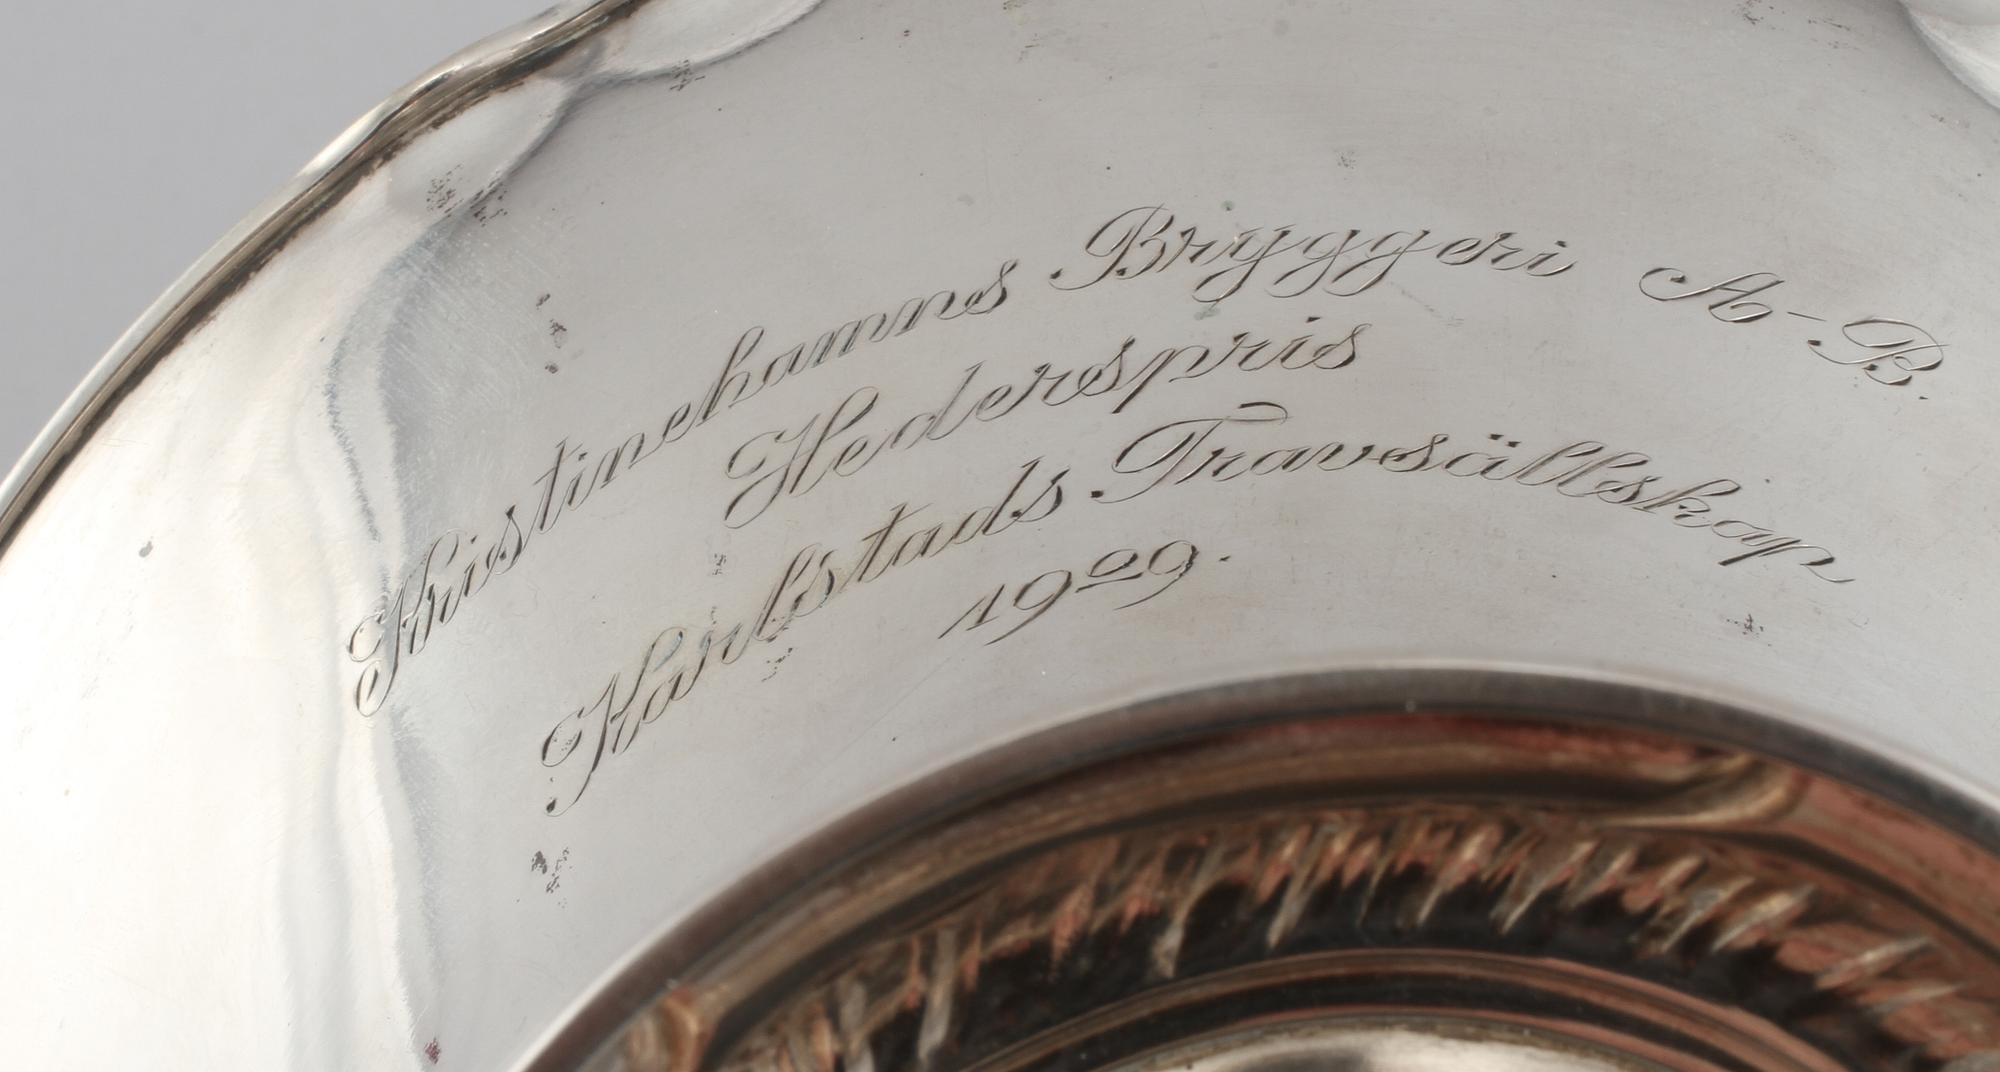 Kristinehamns Bryggeri A-B.
Hederspris
Karlstads Travsällskap
1929.